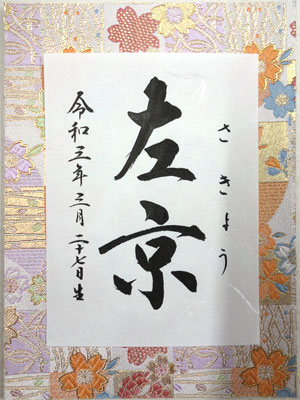 さきょう
左京
令和三年三月二十七日生